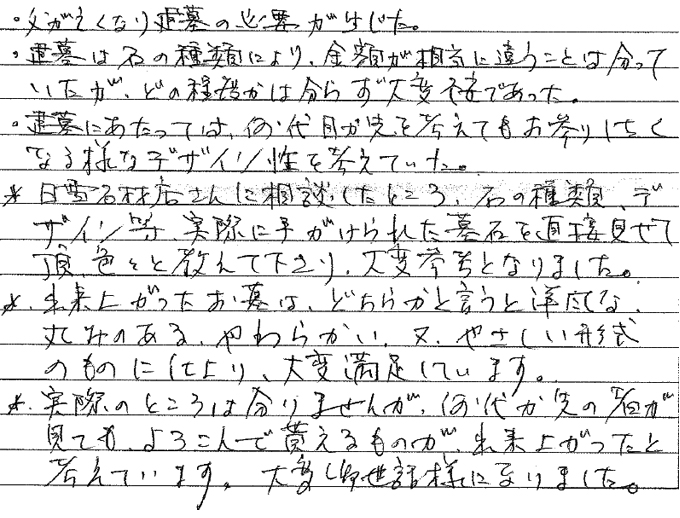 ・父が亡くなり建墓の必要が生じた。
・建墓は石の種類により、金額が相当に違うことは分って
いたが、どの程度かは分らず大変不安であった。
・建墓にあたっては、何代目か先を考えてもお参りしたく
なる様なデザイン性を考えていた。
* 日高石材店さんに相談したところ、石の種類、デ
ザイン等、実際に手がけられた墓石を直接見せて
頂き、色々と教えて下さり、大変参考となりました。
* 出来上がったお墓は、どちらかと言うと洋風な、
丸みのある、やわらかい、又、やさしい形式
のものに仕上り、大変満足しています。
* 実際のところは分りませんが、何代か先の者が
見ても、よろこんで貰えるものが、出来上がったと
考えています。大変お世話様になりました。